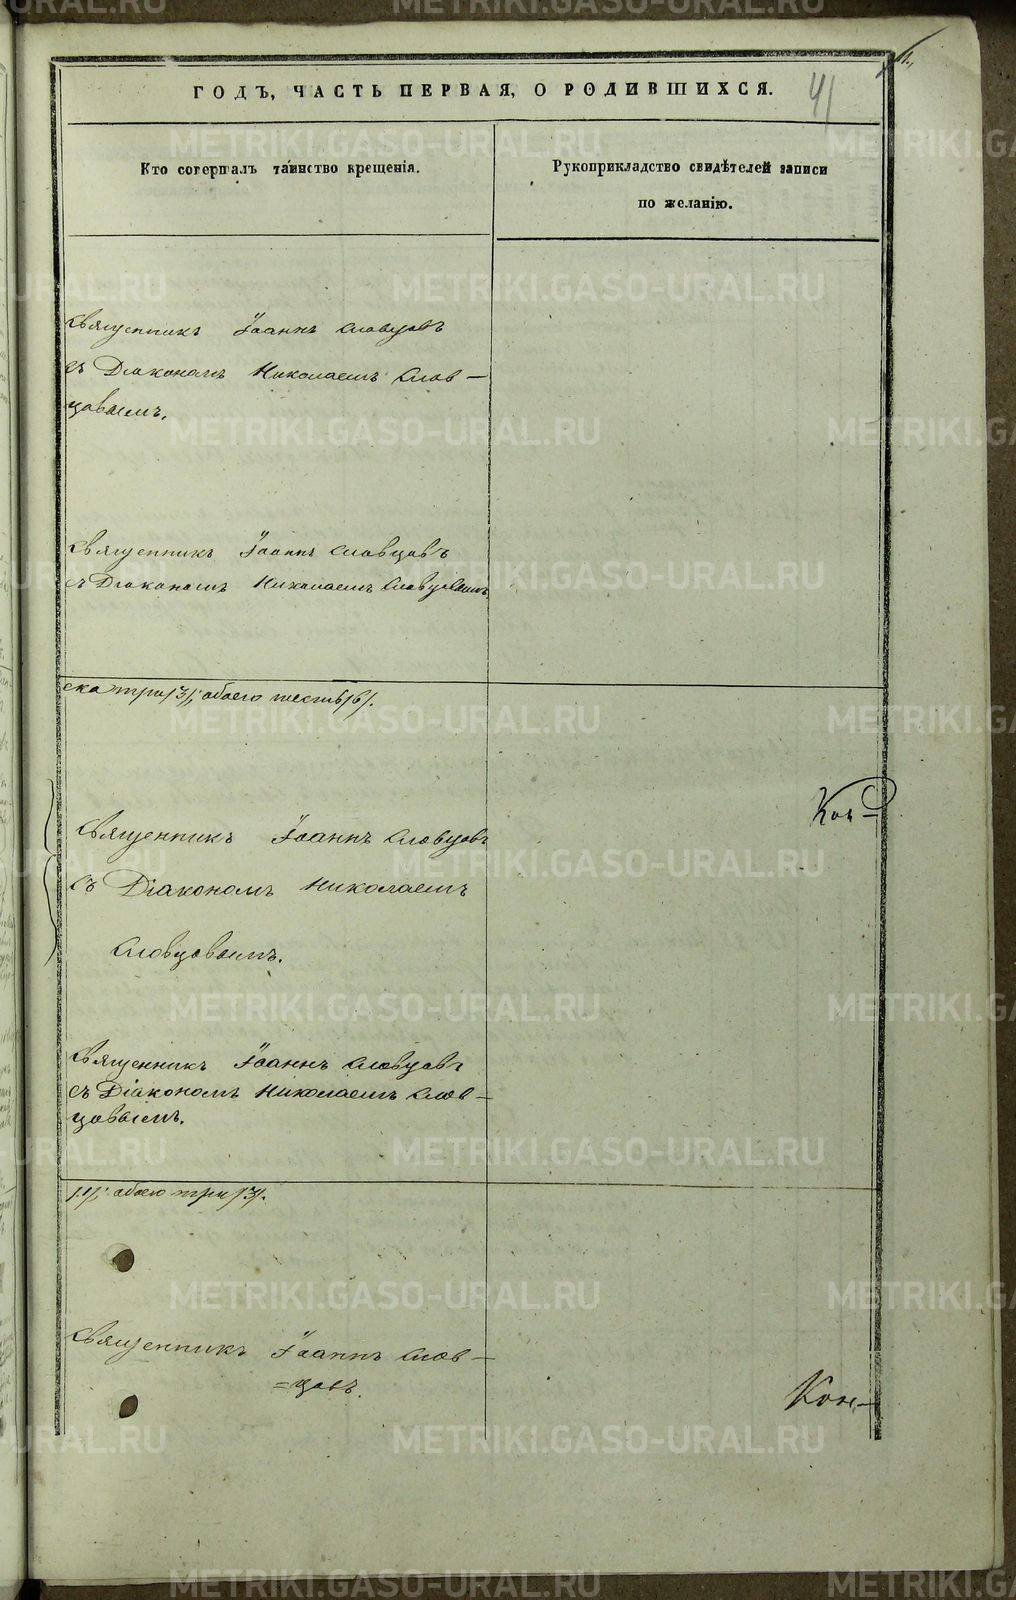 ГОДЪ, ЧАСТЬ ПЕРВАЯ, О РОДИВШИХСЯ.
41
Кто совершалъ таинство крещенія.
Рукоприкладство свидѣтелей записи
по желанію.
Священникъ Іоаннъ Словцовъ
съ Діакономъ Николаемъ Слов-
цовымъ.
Священникъ Іоаннъ Словцовъ
съ Діакономъ Николаемъ Словцовымъ
ска три /3/; обоего шесть /6/.
Священникъ Іоаннъ Словцовъ
съ Діакономъ Николаемъ
Словцовымъ.
Священникъ Іоаннъ Словцовъ
съ Діакономъ Николаемъ Слов-
цовымъ.
/1/; обоего три /3/.
Священникъ Іоаннъ Слов-
=цовъ.
Кон-
METRIKI.GASO-URAL.RU